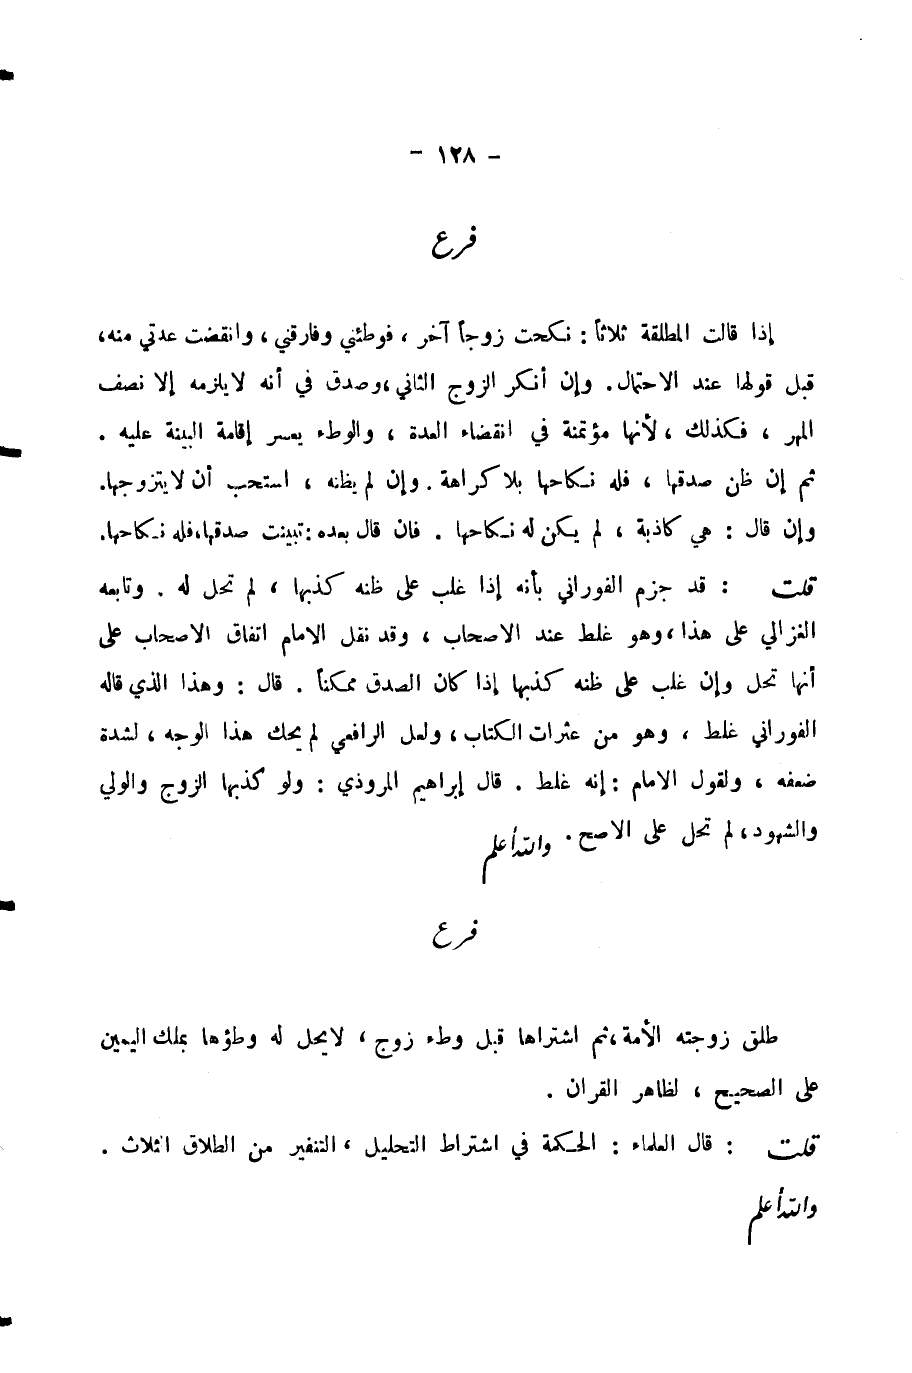 - ١٢٨ -
فرع
إذا قالت المطلقة ثلاثاً : نكحت زوجاً آخر ، فوطئني وفارقني ، وانقضت عدتي منه،
قبل قولها عند الاحتمال. وإن أنكر الزوج الثاني ،وصدق في أنه لايلزمه إلا نصف
المهر ، فكذلك ، لأنها مؤتمنة في انقضاء العدة ، والوطء يعسر إقامة البينة عليه .
ثم إن ظن صدقها ، فله نكاحها بلا كراهة . وإن لم يظنه ، استحب أن لايتزوجها.
وإن قال : هي كاذبة ، لم يكن له نكاحها . فان قال بعده :تبينت صدقها،فله نكاحها.
قلت : قد جزم الفوراني بأنه إذا غلب على ظنه كذبها ، لم تحل له . وتابعه
الغزالي على هذا ،وهو غلط عند الاصحاب ، وقد نقل الامام اتفاق الاصحاب على
أنها تحل وإن غلب على ظنه كذبها إذا كان الصدق ممكناً . قال : وهذا الذي قاله
الفوراني غلط ، وهو من عثرات الكتاب ، ولعل الرافعي لم يحك هذا الوجه ، لشدة
ضعفه ، ولقول الامام : إنه غلط . قال إبراهيم المروذي : ولو كذبها الزوج والولي
والشهود ، لم تحل على الاصح . والله أعلم
فرع
طلق زوجته الأمة ،ثم اشتراها قبل وطء زوج ، لايحل له وطؤها بملك اليمين
على الصحيح ، لظاهر القران .
قلت : قال العلماء : الحكمة في اشتراط التحليل ، التنفير من الطلاق الثلاث .
والله أعلم